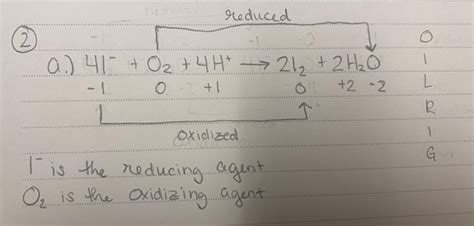 reduced
② a.) 4I⁻ + O₂ + 4H⁺ → 2I₂ + 2H₂O
-1 0 +1 0 +2 -2
oxidized
I⁻ is the reducing agent
O₂ is the oxidizing agent
O
I
L
R
I
G